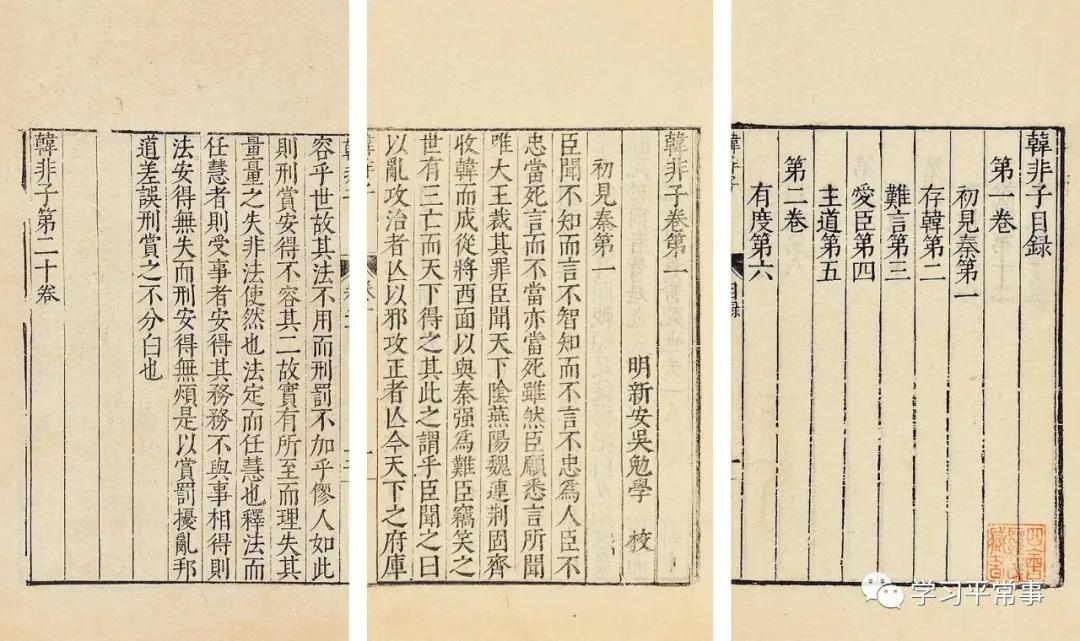 韓非子目録
第一卷
初見秦第一
存韓第二
難言第三
愛臣第四
主道第五
第二卷
有度第六
韓非子 目録
韓非子卷第一
明新安吳勉學 校
初見秦第一
臣聞不知而言不智知而不言不忠爲人臣不
忠當死言而不當亦當死雖然臣願悉言所聞
唯大王裁其罪臣聞天下陰燕陽魏連荆固齊
收韓而成從將西面以與秦强爲難臣竊笑之
世有三亡而天下得之其此之謂乎臣聞之曰
以亂攻治者亾以邪攻正者亾今天下之府庫
容乎世故其法不用而刑罰不加乎僇人如此
則刑賞安得不容其二故實有所至而理失其
量量之失非法使然也法定而任慧也釋法而
任慧者則受事者安得其務務不與事相得則
法安得無失而刑安得無煩是以賞罰擾亂邦
道差誤刑賞之不分白也
韓非子第二十卷
学习平常事